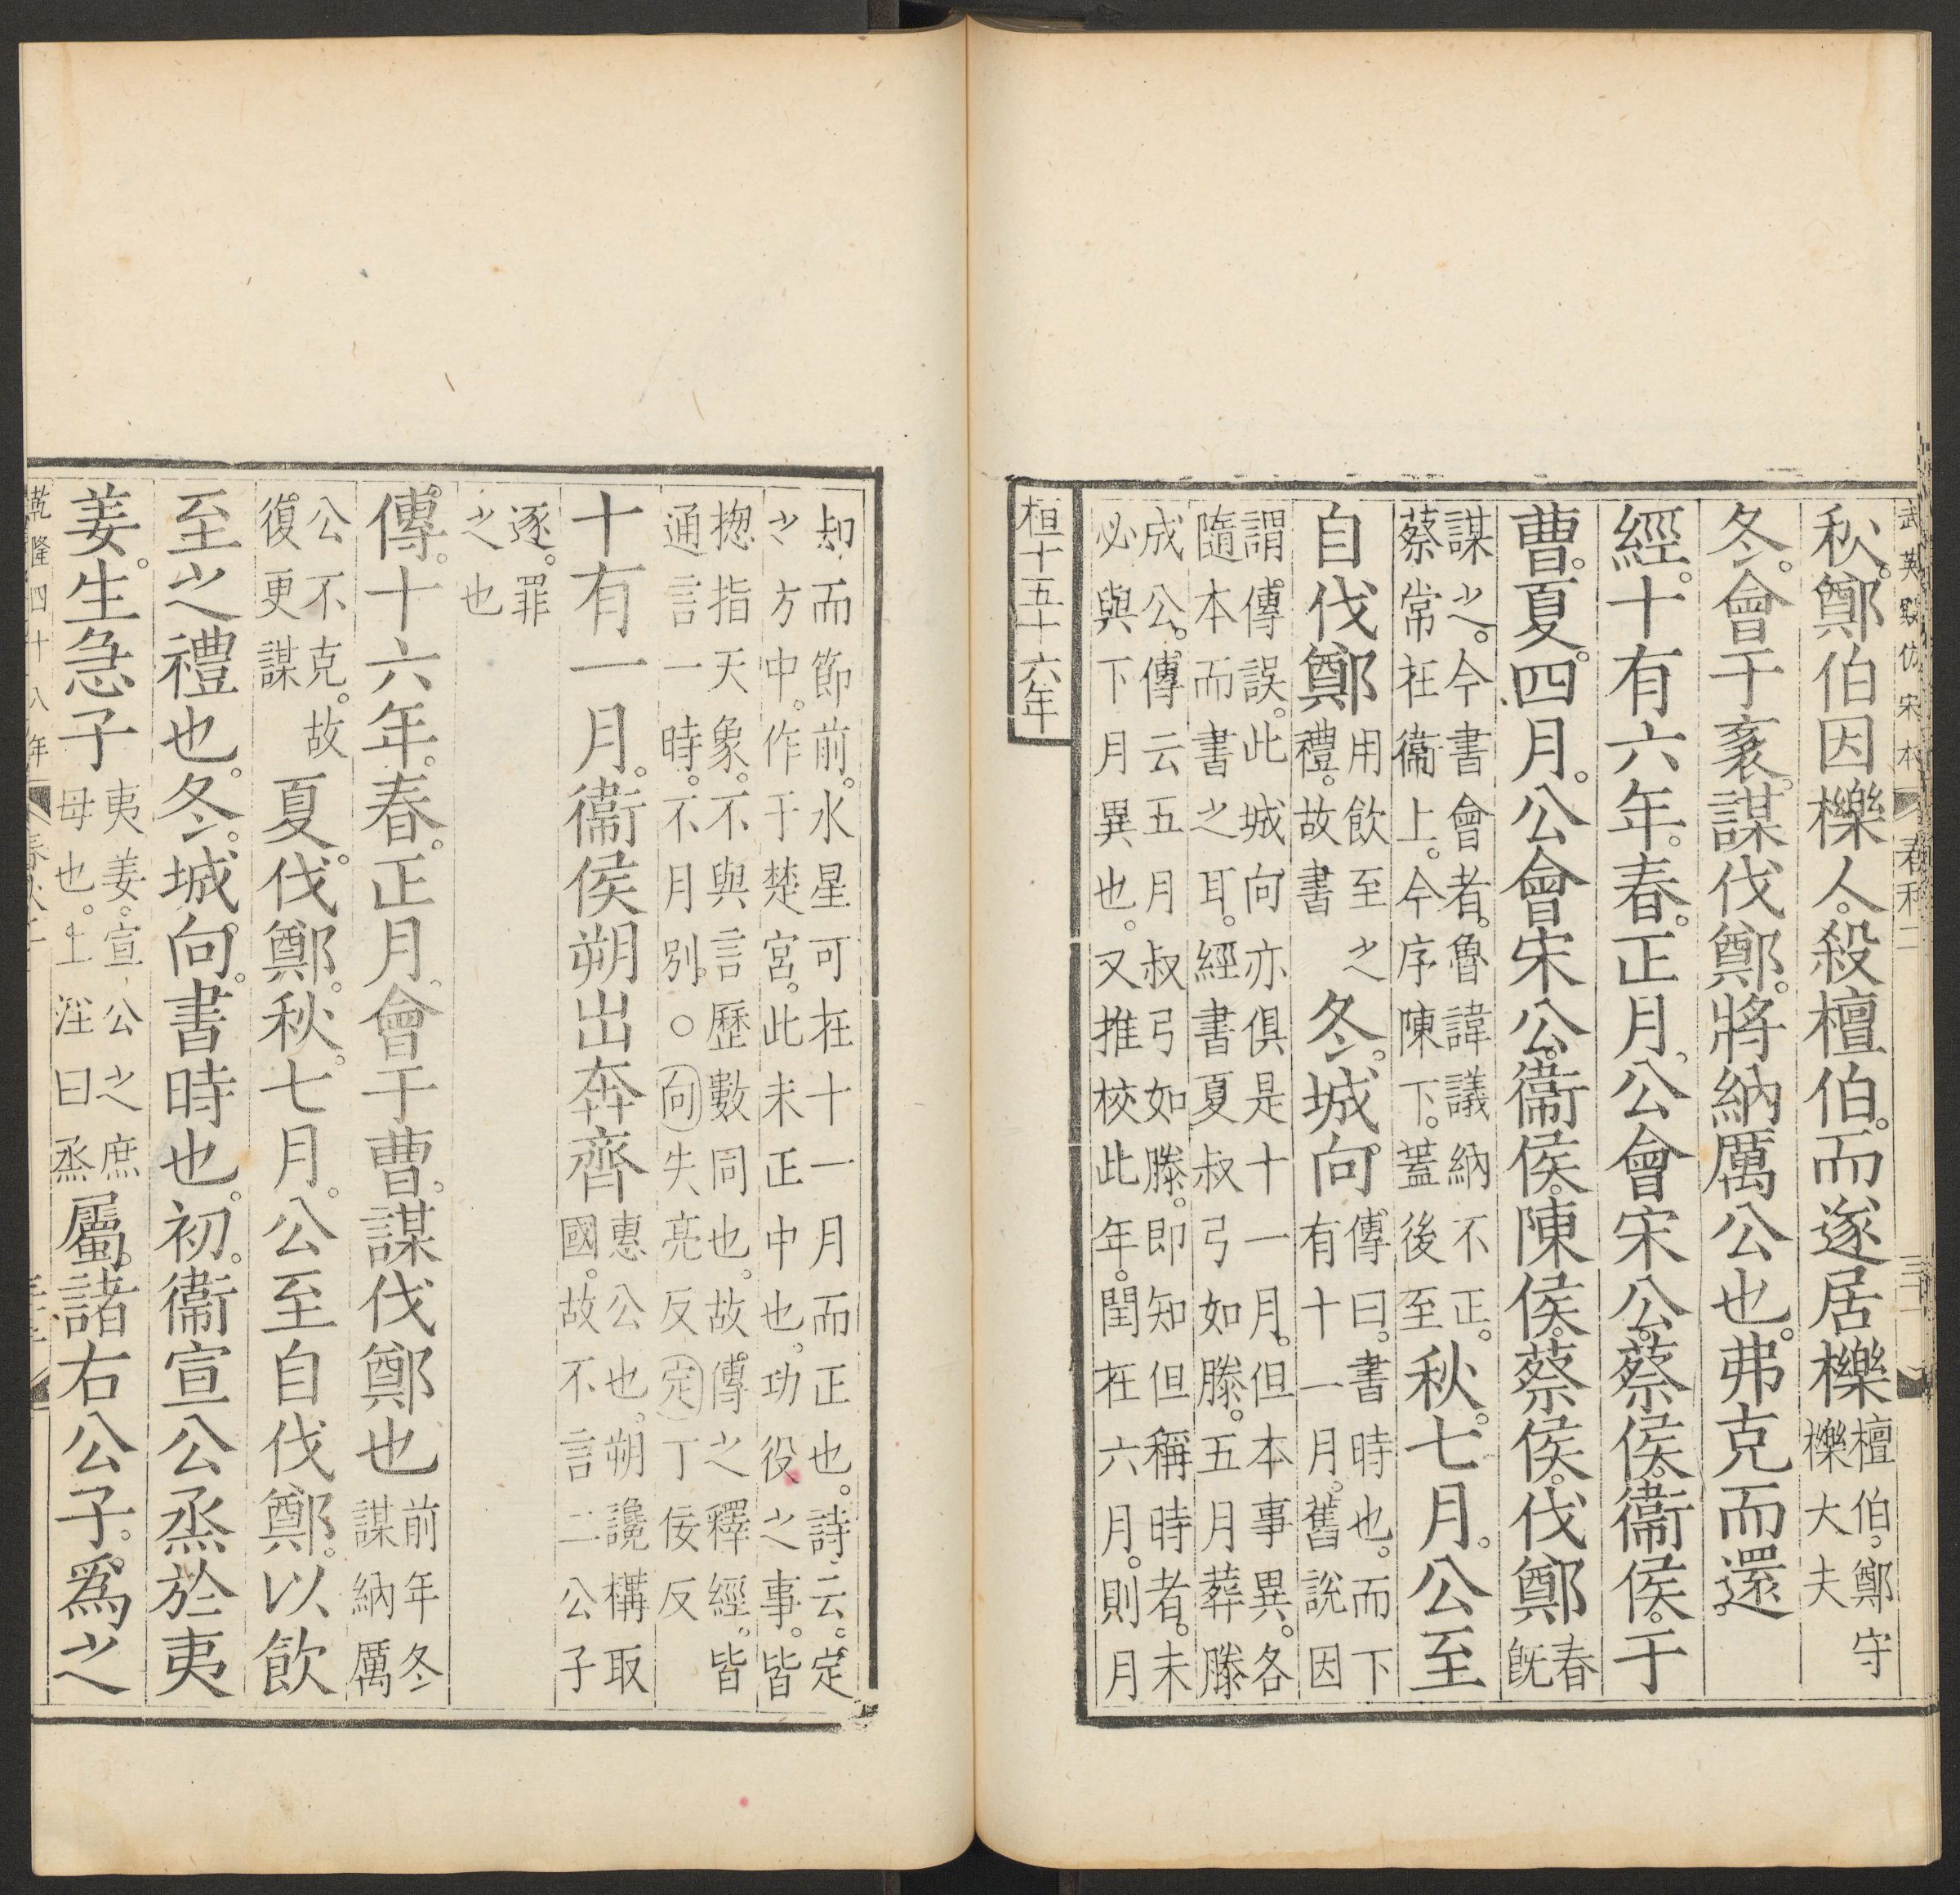 武英殿仿宋本 春秋二 三十一
秋。鄭伯因櫟人。殺檀伯。而遂居櫟檀伯。鄭守櫟大夫
冬。會于袲。謀伐鄭。將納厲公也。弗克而還。
經。十有六年。春。正月。公會宋公。蔡侯。衞侯。于
曹。夏。四月。公會宋公。衞侯。陳侯。蔡侯。伐鄭春既
謀之。今書會者。魯諱議納不正。蔡常在衞上。今序陳下。蓋後至秋。七月。公至
自伐鄭用飲至之禮。故書冬。城向。傳曰。書時也。而下有十一月。舊說因
謂。傳誤。此城向亦俱是十一月。但本事異。各隨本而書之耳。經書夏叔弓如滕。五月葬滕
成公。傳云五月叔弓如滕。即知但稱時者。未必與下月異也。又推校此年。閏在六月。則月
桓十五十六年
却而節前。水星可在十一月而正也。詩云。定之方中。作于楚宮。此未正中也。功役之事。皆
揔指天象。不與言歷數同也。故傳之釋經。皆通言一時。不月別。○向失亮反定丁佞反
十有一月。衞侯朔出奔齊惠公也。朔讒構取國。故不言二公子
逐。罪之也
傳。十六年。春。正月。會于曹。謀伐鄭也前年冬謀納厲
公不克。故復更謀夏。伐鄭。秋。七月。公至自伐鄭。以飲
至之禮也。冬。城向。書時也。初。衞宣公烝於夷
姜。生急子夷姜。宣公之庶母也。上淫曰烝屬諸右公子。爲之
乾隆四十八年 春秋二